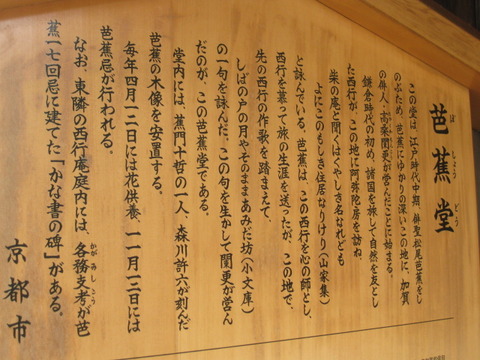 芭蕉堂
ばしょうどう
この堂は、江戸時代中期、俳聖松尾芭蕉をし
のぶため、芭蕉にゆかりの深いこの地に、加賀
の俳人・高桑闌更が営んだことに始まる。
鎌倉時代の初め、諸国を旅して自然を友とし
た西行が、この地に阿弥陀房を訪ね
柴の庵と聞くはくやしき名なれども
よにこのもしき住居なりけり(山家集)
と詠んでいる。芭蕉は、この西行を心の師とし、
西行を慕って旅の生涯を送ったが、この地で、
先の西行の作歌を踏まえて、
しばの戸の月やそのままあみだ坊(小文庫)
の一句を詠んだ。この句を生かして闌更が営ん
だのが、この芭蕉堂である。
堂内には、蕉門十哲の一人、森川許六が刻んだ
芭蕉の木像を安置する。
毎年四月一二日には花供養、一一月一二日には
芭蕉忌が行われる。
なお、東隣の西行庵庭内には、各務支考が芭
かがみしこう
蕉一七回忌に建てた「かな書の碑」がある。
京都市